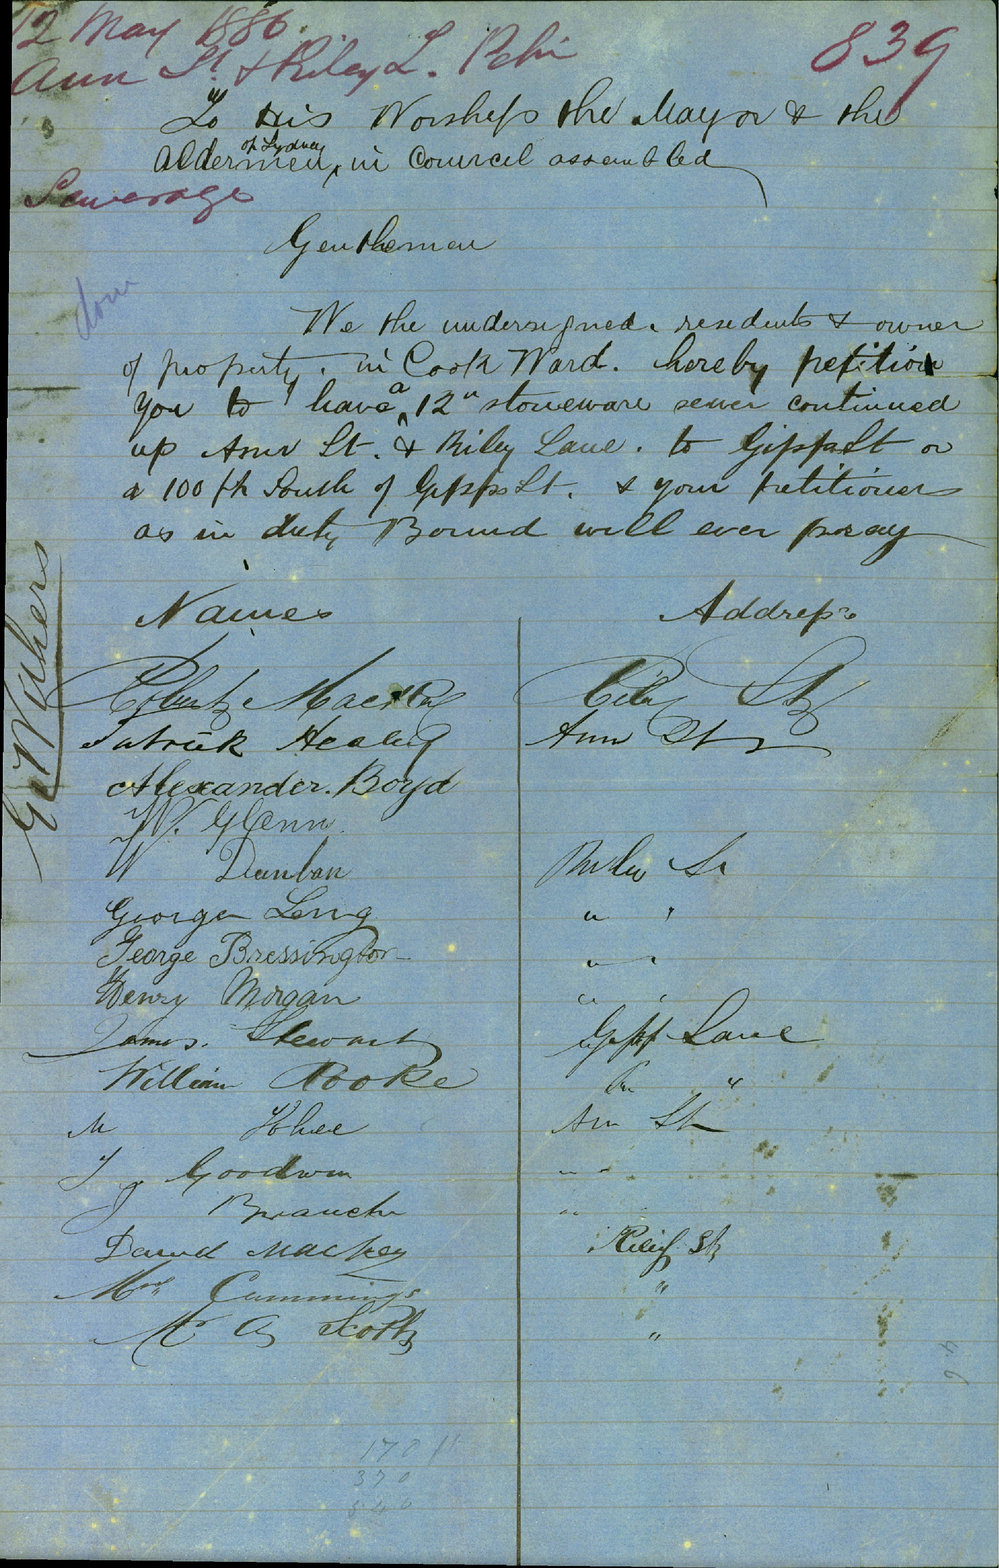 12 May 1886.
839
Ann St. & Riley L. Petn
To His Worships the Mayor & the
of Sydney
Aldermen, in Council assembled
Sewerage
Gentlemen
done
We the undersigned. residents & owner
of property. in Cook Ward. hereby petition
You to have a 12" stoneware sewer continued
up Ann St. & Riley Lane. to Gipps St or
a 100 ft South of Gipps St. & your petitioners
as in duty Bound will ever pray
Names Address
Mackey Riley St
Patrick Healey Ann St
Alexander. Boyd
W. Glenn.
W Dunban Riley St
George Leng " "
George Bressington " "
Henry Morgan " "
James. Stewart Gipp Lane
William Rooke "
M Ann St
T g Goodwin " "
J Branch "
David Mackey Riley St
Mrs Cummings "
Mc A Scott "
170 11
370